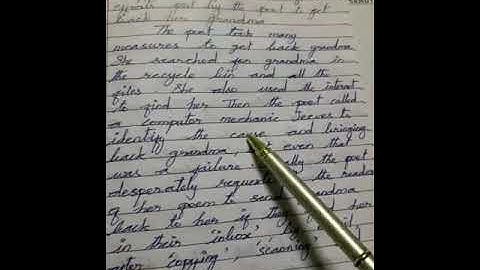 efforts put by the poet to get
back her grandma
The poet took many
measures to get back grandma
She searched for grandma in
the recycle bin and all the
files. She also used the internet
to find her Then the poet called
a computer mechanic Jeeves to
identify the case and bringing
back grandma, even that
was a failure the poet
desperately requests the readers
of her poem to send grandma
back to her if they her
in their 'inbox', by
after 'copying', 'scanning'